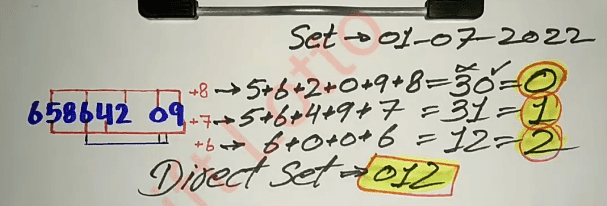 Set → 01-07-2022
+8 → 5+6+2+0+9+8=30=0
658642 09 +7→ 5+6+4+9+7 =31=1
+6 → 6+0+0+6 =12=2
Direct Set → 012